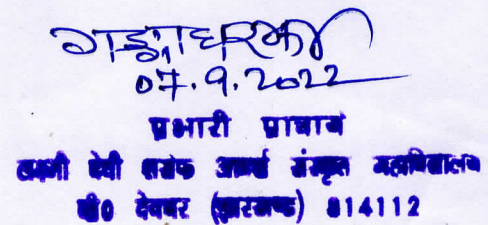 गङ्गाधर झा
07.9.2022
प्रभारी प्राचार्य
लक्ष्मी देवी शर्राफ आदर्श संस्कृत महाविद्यालय
देवघर (झारखण्ड) 814112